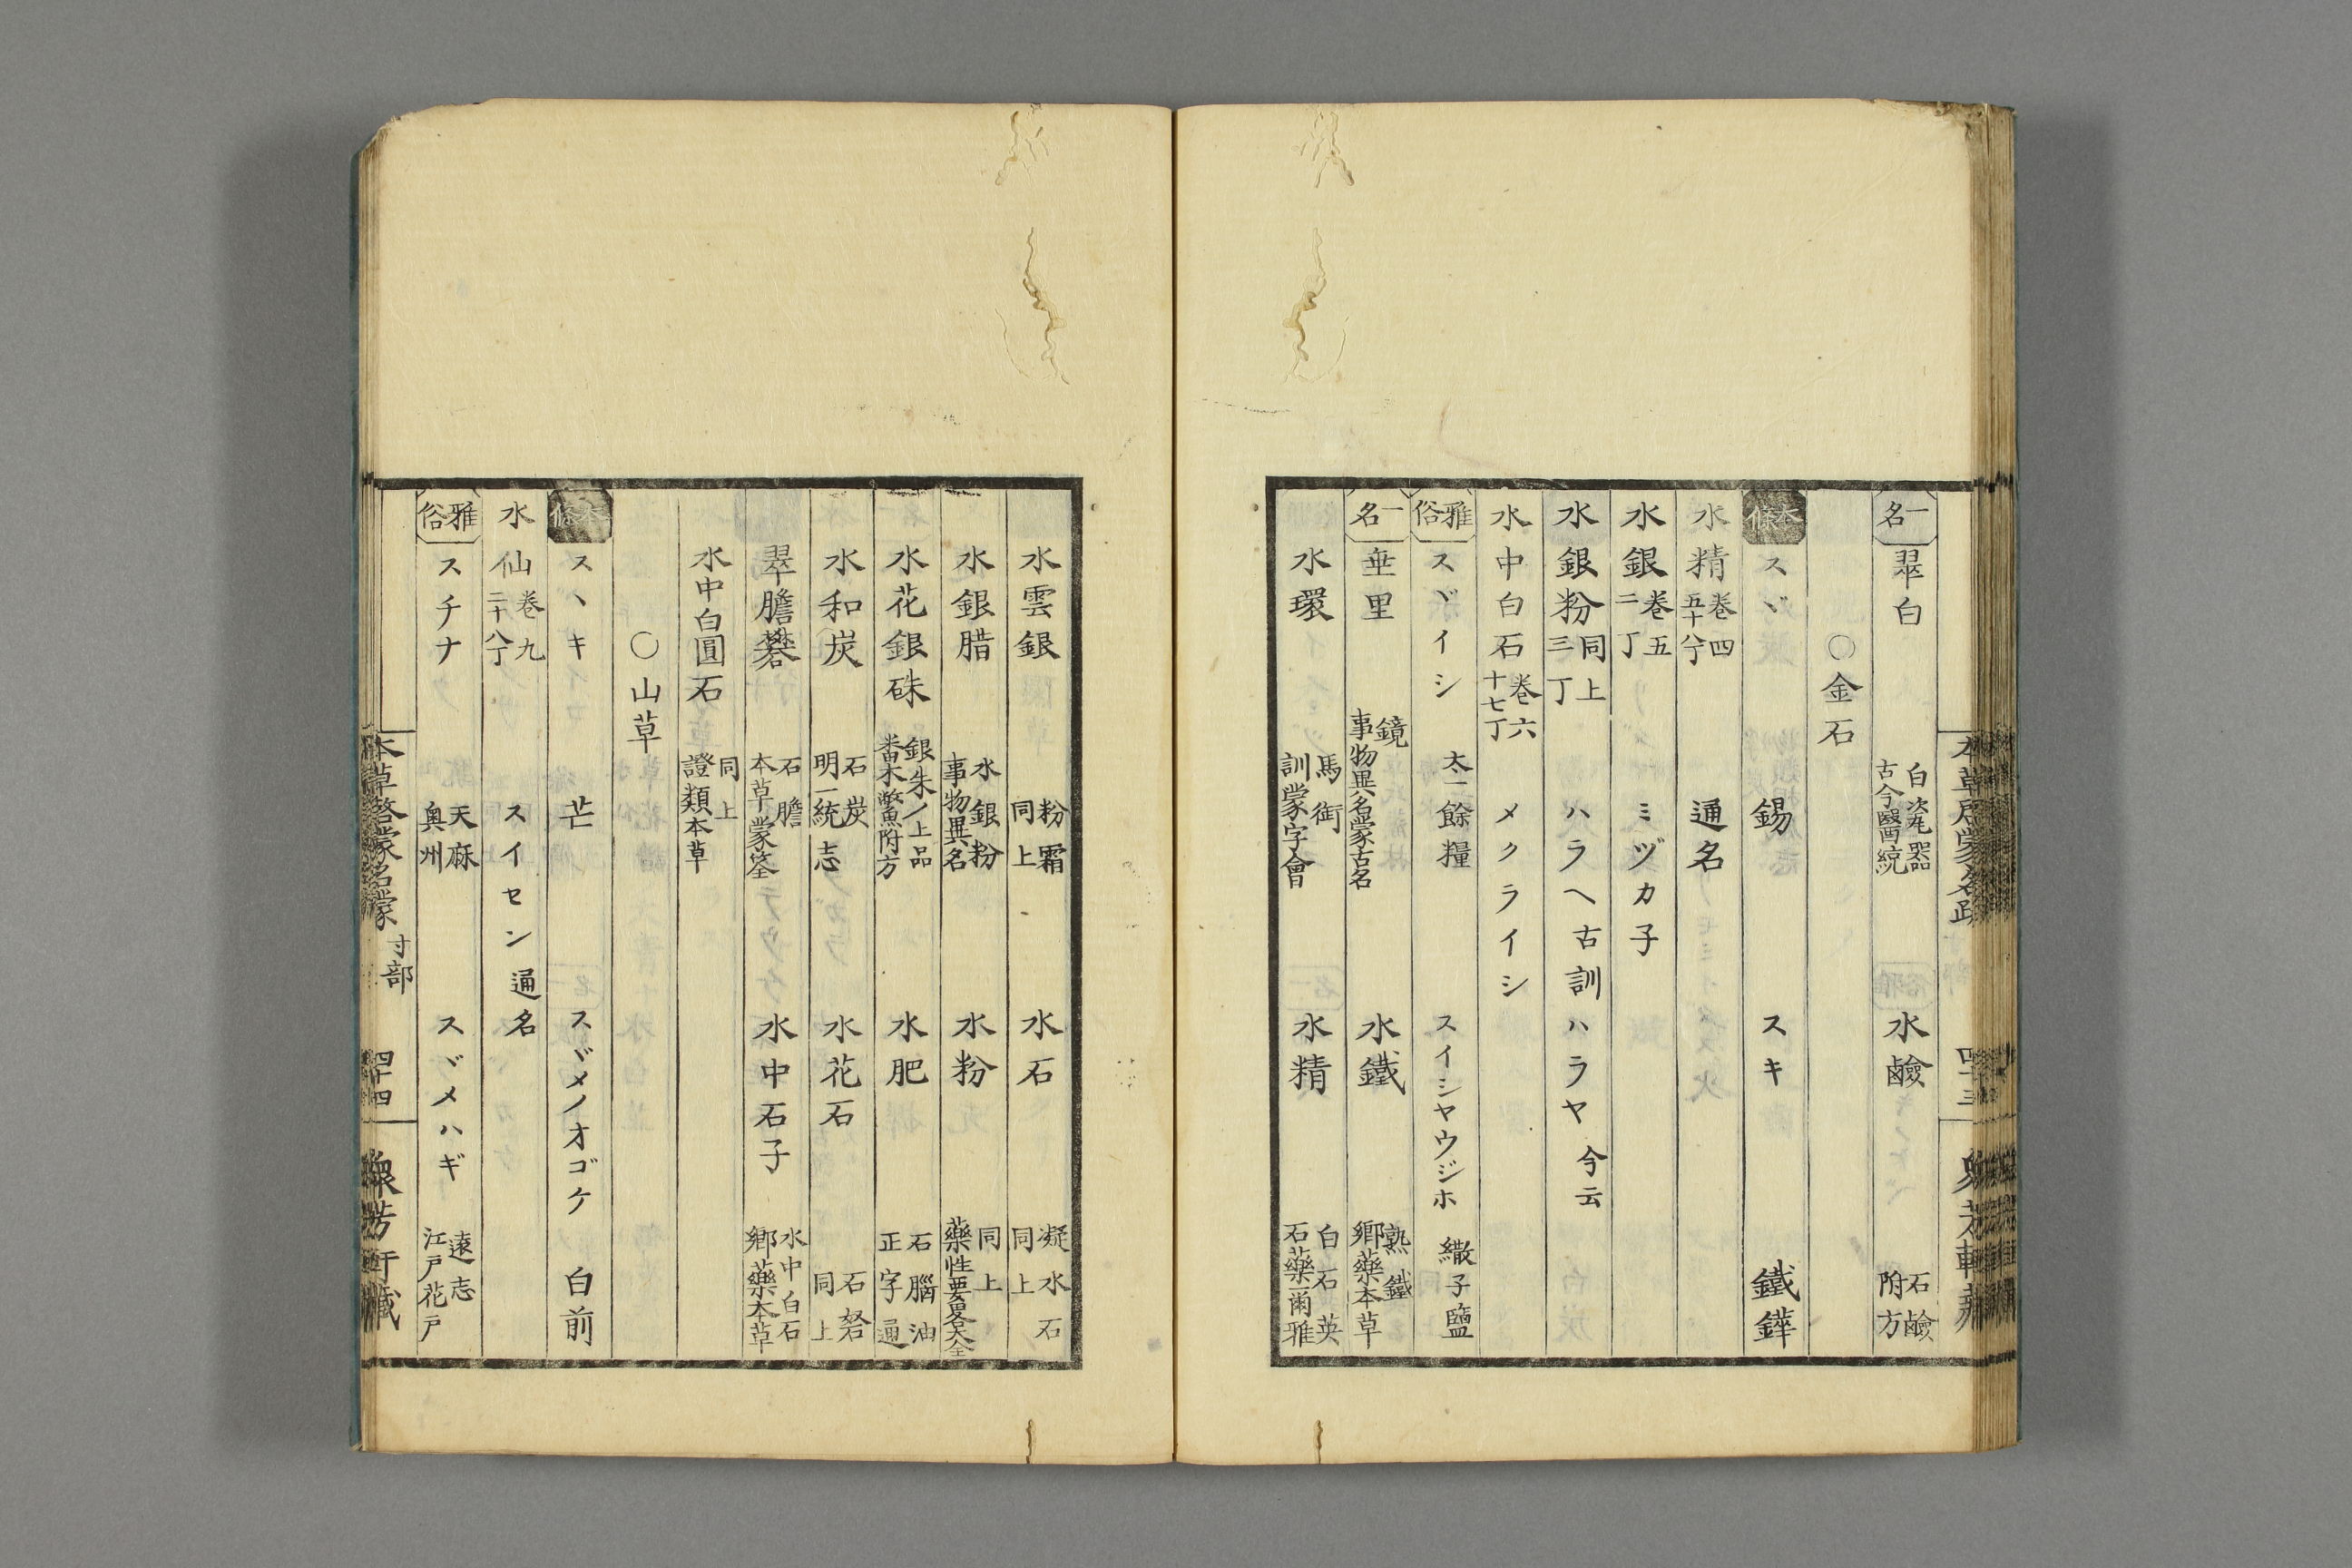 一名 翠白 白瓷器 古今醫統 水鹼 石鹼 附方
○金石
本條 スヾ 錫 スキ 鐵鏵
水精 卷四 五十丁 通名
水銀 卷五 二丁 ミヅカ子
水銀粉 同上 三丁 ハラヘ 古訓 ハラヤ 今云
水中白石 卷六 十七丁 メクライシ
雅俗 スヾイシ 太一餘糧 スイシヤウジホ 繖子鹽
一名 垂里 鏡 事物異名蒙古名 水鐵 熟鐵 鄉藥本草
水環 馬銜 訓蒙字會 水精 白石英 石藥爾雅
水雲銀 粉霜 同上 水石 凝水石 同上
水銀腊 水銀粉 事物異名 水粉 同上 藥性要畧大全
水花銀硃 銀朱ノ上品 番木鱉魚附方 水肥 石腦油 正字通
水和炭 石炭 明一統志 水花石 石砮 同上
翠膽礬 石膽 本草蒙筌 水中石子 水中白石 鄉藥本草
水中白圓石 同上 證類本草
○山草
本條 スヽキ 芒 スヾメノオゴケ 白前
水仙 卷九 二十八丁 スイセン 通名
雅俗 スチナ 天麻 奥州 スヾメハギ 遠志 江戸花戸
本草啓蒙名 寸部 四十四 衆芳軒藏